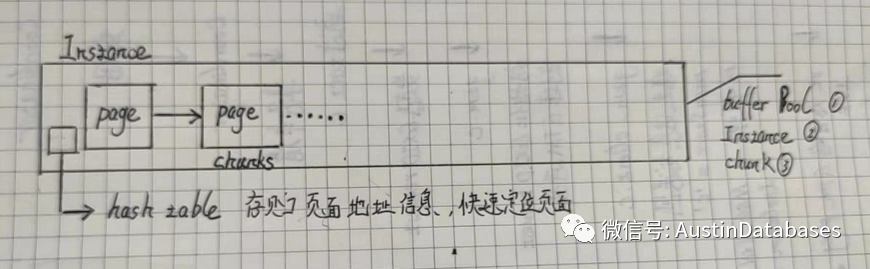 Instance
page → page ......
chunks
buffer Pool ①
Instance ②
chunk ③
hash table 存贮了页面地址信息,快速定位页面
微信号: AustinDatabases